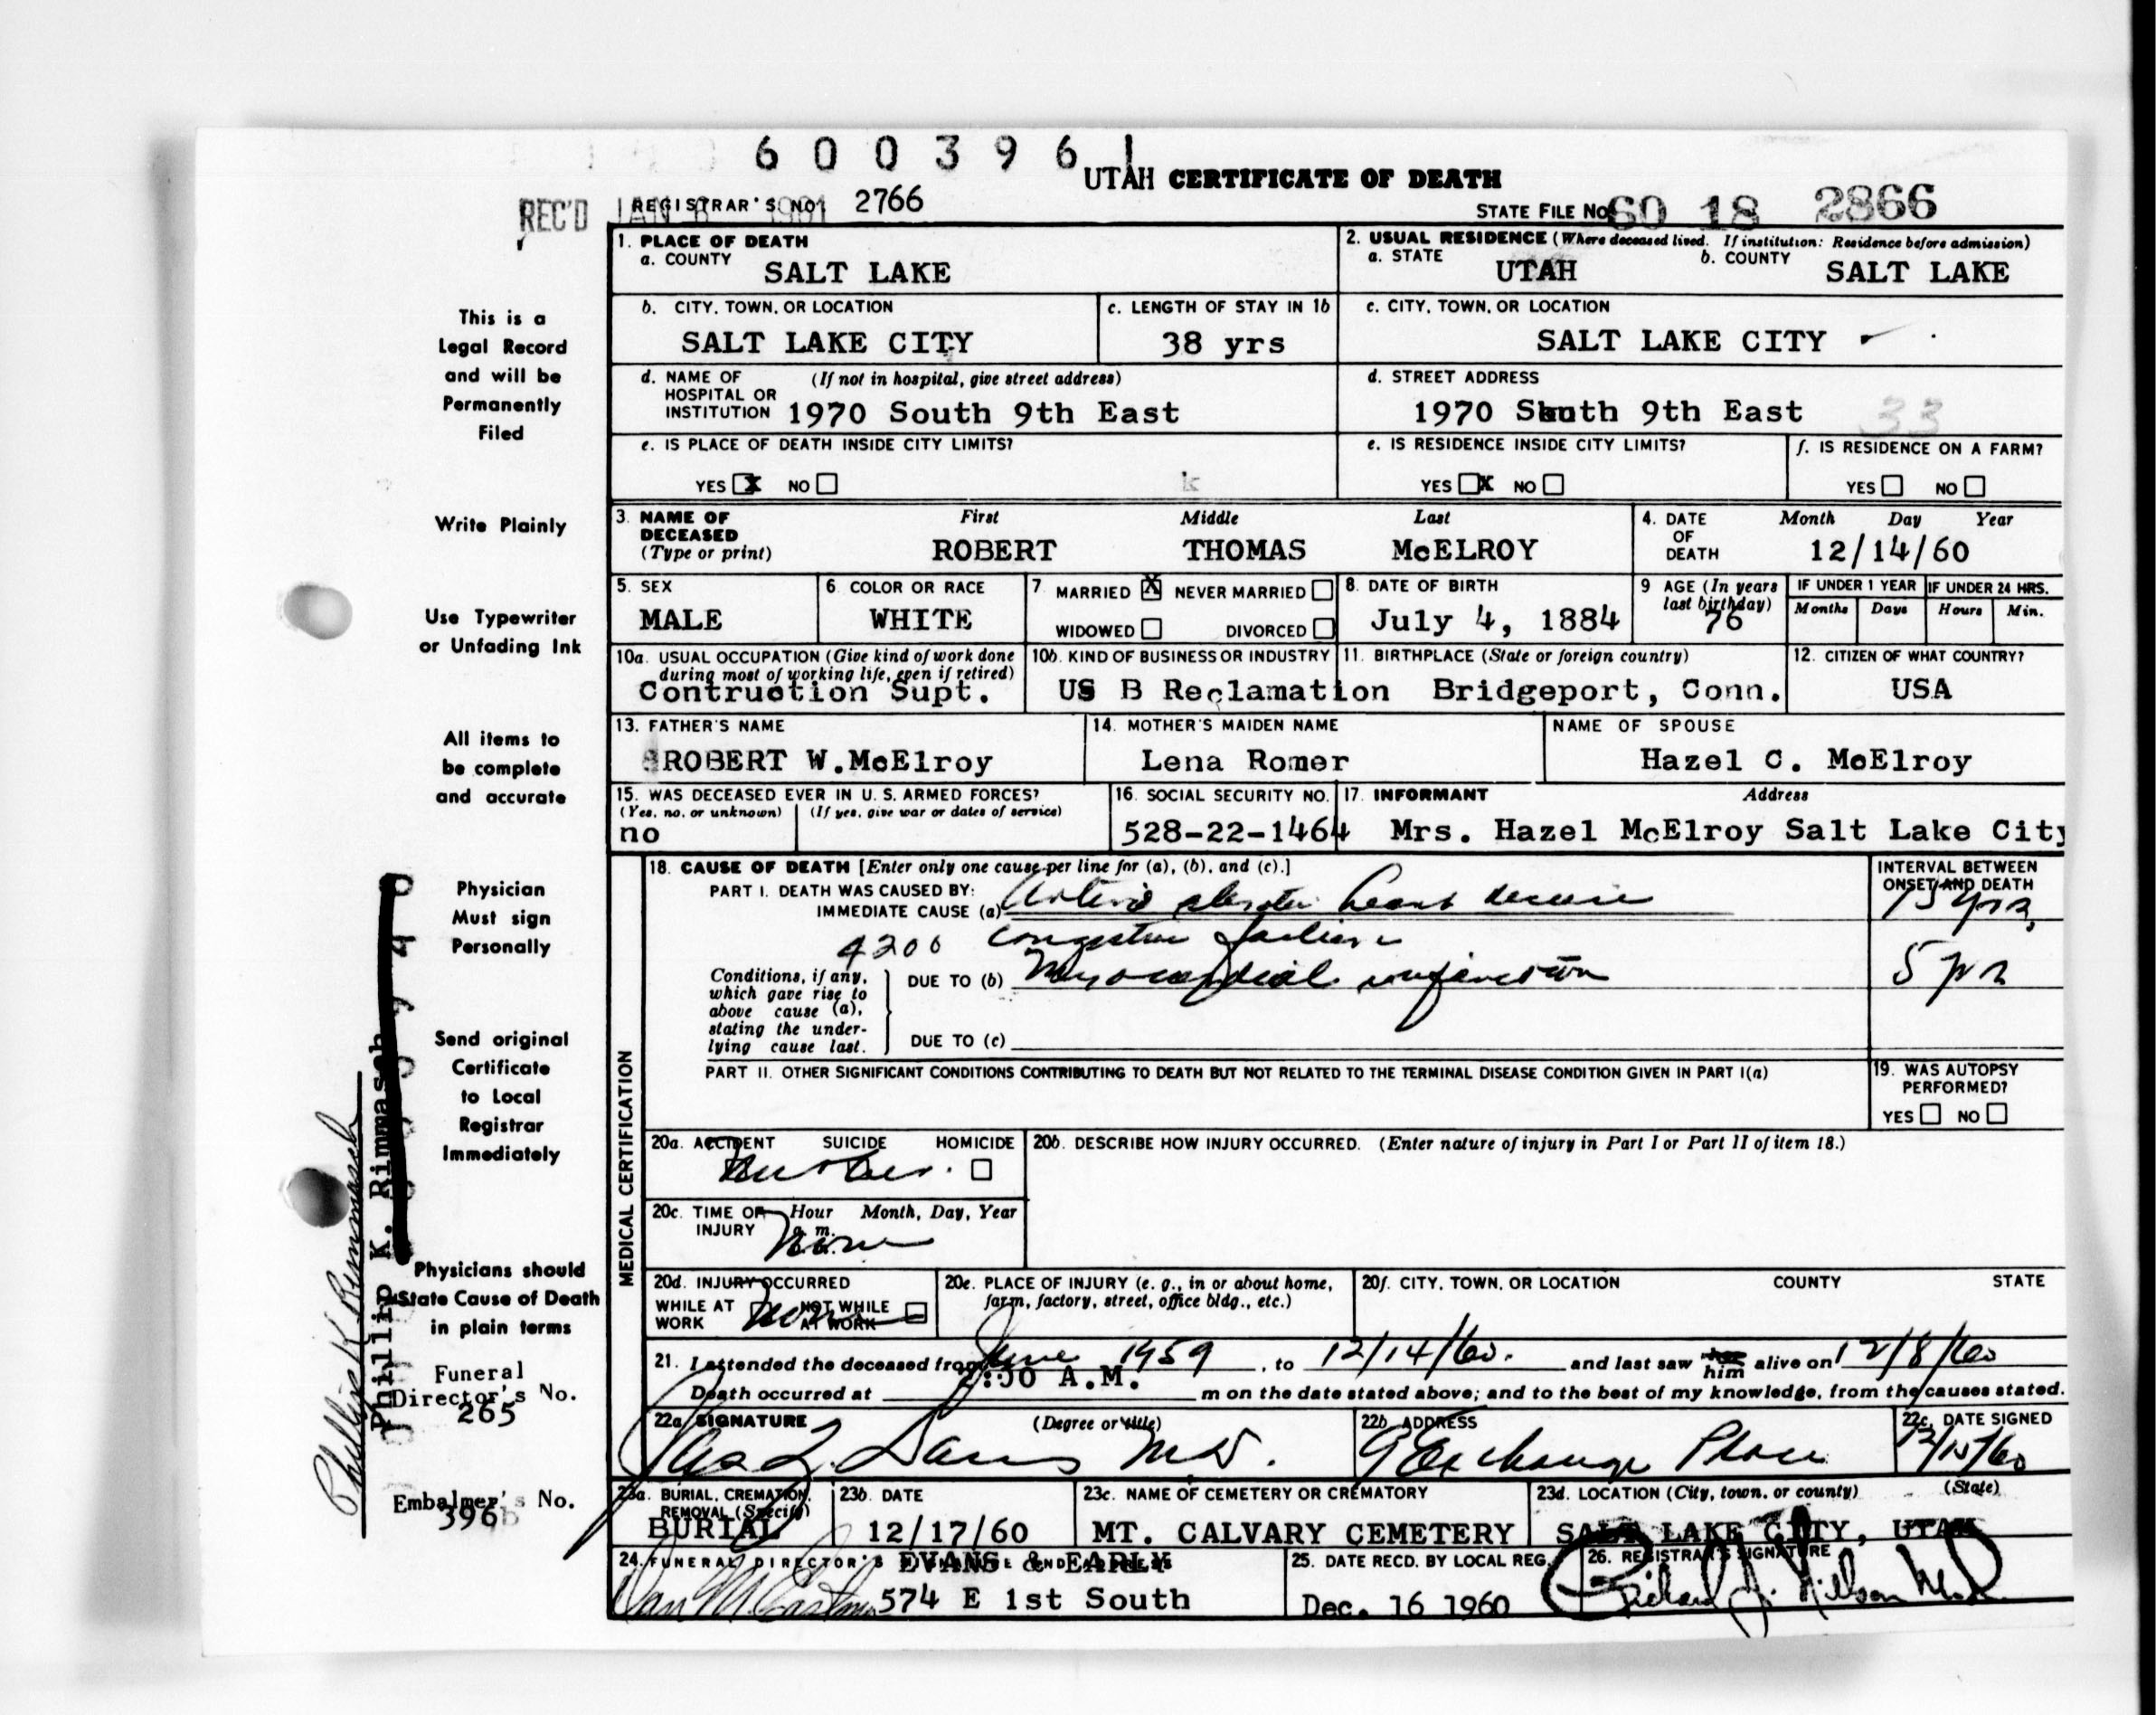 6 0 0 3 9 6 1
UTAH CERTIFICATE OF DEATH
REC'D JAN 1961 REGISTRAR'S NO. 2766
STATE FILE NO. 60 18 2866
1. PLACE OF DEATH
a. COUNTY SALT LAKE
2. USUAL RESIDENCE (Where deceased lived. If institution: Residence before admission)
a. STATE UTAH b. COUNTY SALT LAKE
b. CITY, TOWN, OR LOCATION SALT LAKE CITY
c. LENGTH OF STAY IN 1b 38 yrs
c. CITY, TOWN, OR LOCATION SALT LAKE CITY
d. NAME OF HOSPITAL OR INSTITUTION (If not in hospital, give street address) 1970 South 9th East
d. STREET ADDRESS 1970 South 9th East 33
e. IS PLACE OF DEATH INSIDE CITY LIMITS?
YES X NO
e. IS RESIDENCE INSIDE CITY LIMITS?
YES X NO
f. IS RESIDENCE ON A FARM?
YES NO
3. NAME OF DECEASED (Type or print)
First Middle Last
ROBERT THOMAS McELROY
4. DATE OF DEATH Month Day Year
12/14/60
5. SEX MALE
6 COLOR OR RACE WHITE
7 MARRIED X NEVER MARRIED
WIDOWED DIVORCED
8. DATE OF BIRTH July 4, 1884
9 AGE (In years last birthday) 76
IF UNDER 1 YEAR Months Days
IF UNDER 24 HRS. Hours Min.
10a. USUAL OCCUPATION (Give kind of work done during most of working life, even if retired)
Contruction Supt.
10b. KIND OF BUSINESS OR INDUSTRY
US B Reclamation
11. BIRTHPLACE (State or foreign country)
Bridgeport, Conn.
12. CITIZEN OF WHAT COUNTRY?
USA
13. FATHER'S NAME
ROBERT W.McElroy
14. MOTHER'S MAIDEN NAME
Lena Romer
NAME OF SPOUSE
Hazel C. McElroy
15. WAS DECEASED EVER IN U. S. ARMED FORCES?
(Yes, no, or unknown) (If yes, give war or dates of service)
no
16. SOCIAL SECURITY NO.
528-22-1464
17. INFORMANT Address
Mrs. Hazel McElroy Salt Lake City
MEDICAL CERTIFICATION
18. CAUSE OF DEATH [Enter only one cause per line for (a), (b), and (c).]
PART I. DEATH WAS CAUSED BY:
IMMEDIATE CAUSE (a) heart disease
4200 Congestive failure
Conditions, if any, which gave rise to above cause (a), stating the underlying cause last.
DUE TO (b) Myocardial infarction
DUE TO (c)
INTERVAL BETWEEN ONSET AND DEATH
15 yrs,
5 yrs
PART II. OTHER SIGNIFICANT CONDITIONS CONTRIBUTING TO DEATH BUT NOT RELATED TO THE TERMINAL DISEASE CONDITION GIVEN IN PART I(a)
19. WAS AUTOPSY PERFORMED?
YES NO
20a. ACCIDENT SUICIDE HOMICIDE
20b. DESCRIBE HOW INJURY OCCURRED. (Enter nature of injury in Part I or Part II of item 18.)
20c. TIME OF INJURY Hour Month, Day, Year
a. m.
None
20d. INJURY OCCURRED
WHILE AT WORK NOT WHILE AT WORK
None
20e. PLACE OF INJURY (e. g., in or about home, farm, factory, street, office bldg., etc.)
20f. CITY, TOWN, OR LOCATION COUNTY STATE
21. I attended the deceased from June 1959, to 12/14/60. and last saw her him alive on 12/8/60
Death occurred at :30 A.M. m on the date stated above; and to the best of my knowledge, from the causes stated.
22a. SIGNATURE (Degree or title)
M.D.
22b. ADDRESS
9 Exchange Place
22c. DATE SIGNED
12/15/60
23a. BURIAL, CREMATION, REMOVAL (Specify)
BURIAL
23b. DATE
12/17/60
23c. NAME OF CEMETERY OR CREMATORY
MT. CALVARY CEMETERY
23d. LOCATION (City, town, or county) (State)
SALT LAKE CITY, UTAH
24. FUNERAL DIRECTOR'S SIGNATURE AND ADDRESS
EVANS & EARLY
574 E 1st South
25. DATE RECD. BY LOCAL REG.
Dec. 16 1960
26. REGISTRAR'S SIGNATURE
This is a
Legal Record
and will be
Permanently
Filed
Write Plainly
Use Typewriter
or Unfading Ink
All items to
be complete
and accurate
Physician
Must sign
Personally
Send original
Certificate
to Local
Registrar
Immediately
Physicians should
State Cause of Death
in plain terms
Funeral
Director's No.
265
Embalmer's No.
396
Phillip K. Rimmasch
Phillip K Rimmasch